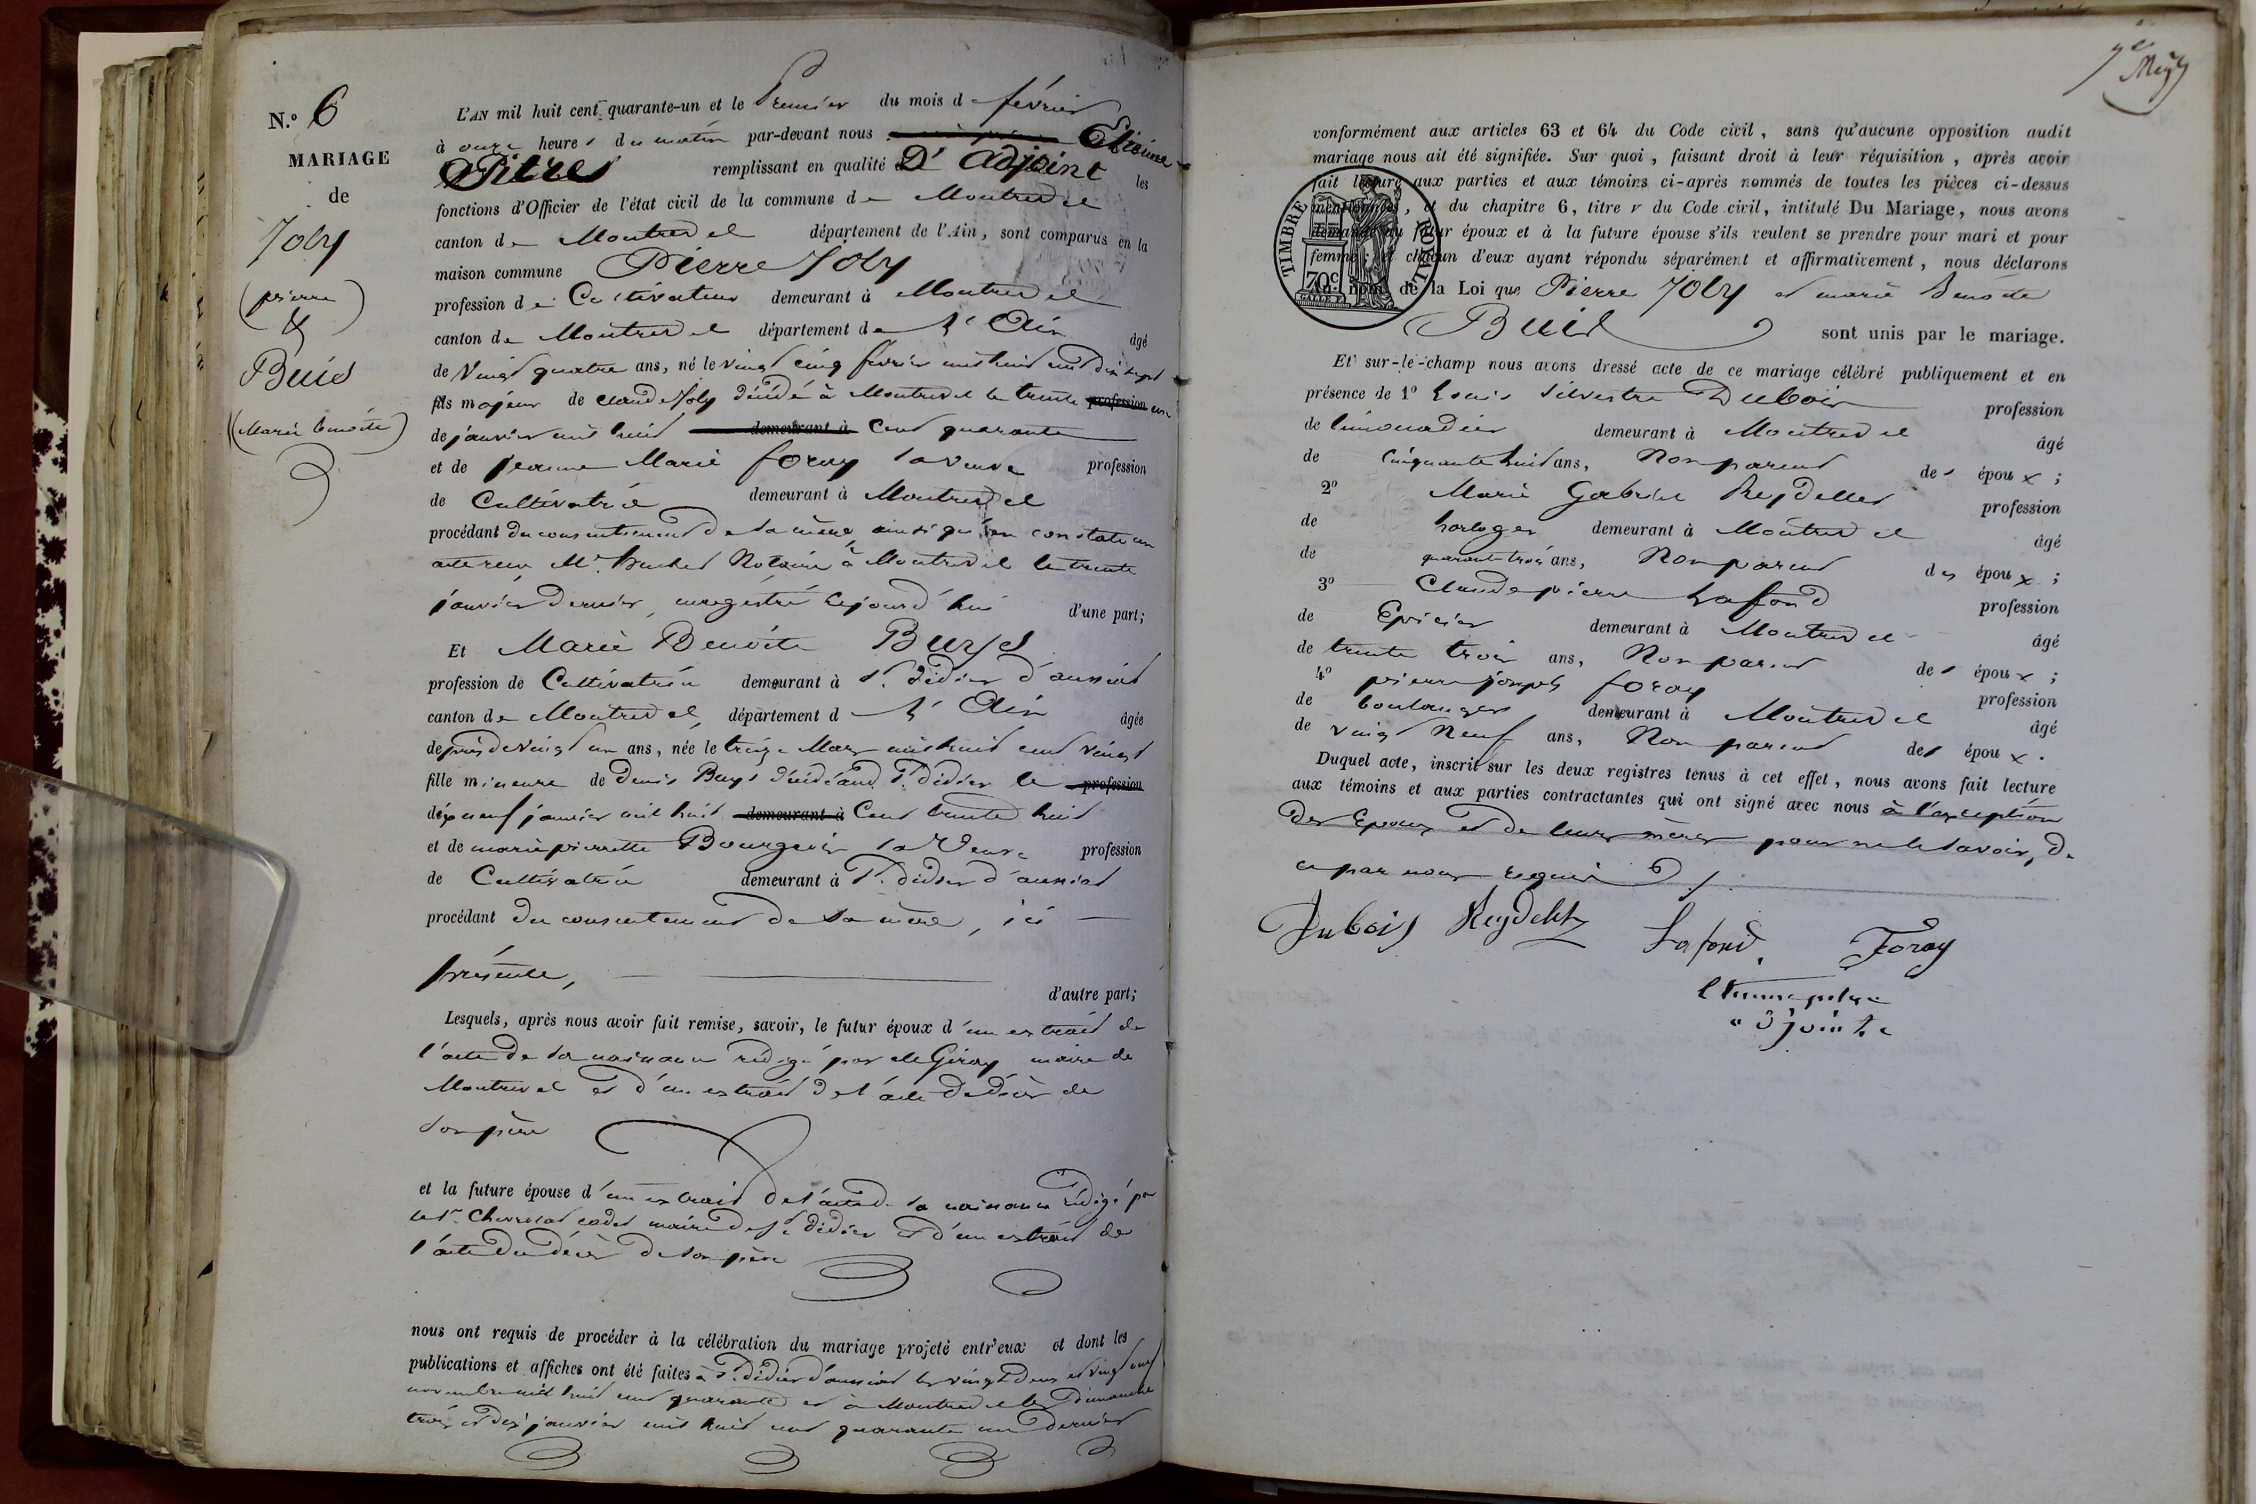 N.º 6
MARIAGE
de
Joly
(pierre)
&
Buis
(Marie benoite)
L'AN mil huit cent quarante-un et le Premier du mois de février
à onze heures du matin par-devant nous Etienne
Pitre remplissant en qualité D'adjoint les
fonctions d'Officier de l'état civil de la commune de Montrevel
canton de Montrevel département de l'Ain, sont comparus en la
maison commune Pierre Joly
profession de Cultivateur demeurant à Montrevel
canton de Montrevel département de L'Ain âgé
de Vingt quatre ans, né le vingt cinq février mil huit cent dix sept
fils majeur de Claude Joly décédé à Montrevel le trente profession un
de janvier mil huit demeurant à Cent quarante
et de jeanne Marie foray sa veuve profession
de Cultivatrice demeurant à Montrevel
procédant du consentement de sa mère, ainsi qu'en constate un
acte reçu Mᵉ Notaire à Montrevel le trente
janvier Dernier, enregistré cejourd'hui d'une part;
Et Marie Benoite Buys
profession de Cultivatrice demeurant à St. Didier d'aussiat
canton de Montrevel, département d L'Ain âgée
de près de vingt un ans, née le treize Mars mil huit cent vingt
fille mineure de Denis Buys décédé aud. St. Didier le profession
dix neuf janvier mil huit demeurant à Cent trente huit
et de marie pierrette Bourgeois sa Veuve profession
de Cultivatrice demeurant à St. Didier d'aussiat
procédant du consentement de sa mère, ici
présente,
d'autre part;
Lesquels, après nous avoir fait remise, savoir, le futur époux d'un extrait de
l'acte de sa naissance rédigé par Mr Giroy maire de
Montrevel et d'un extrait de l'acte de décès de
son père
et la future épouse d'un extrait de l'acte de sa naissance rédigé par
le Sr. cadet maire de St Didier et d'un extrait de
l'acte du décès de son père
nous ont requis de procéder à la célébration du mariage projeté entr'eux et dont les
publications et affiches ont été faites à St. Didier d'aussiat les vingt deux et vingt neuf
novembre mil huit cent quarante et à Montrevel les Dimanche
trois et dix janvier mil huit cent quarante un dernier
7e
conformément aux articles 63 et 64 du Code civil, sans qu'aucune opposition audit
mariage nous ait été signifiée. Sur quoi, faisant droit à leur réquisition, après avoir
fait lecture aux parties et aux témoins ci-après nommés de toutes les pièces ci-dessus
mentionnées, et du chapitre 6, titre v du Code civil, intitulé Du Mariage, nous avons
demandé au futur époux et à la future épouse s'ils veulent se prendre pour mari et pour
femme; et chacun d'eux ayant répondu séparément et affirmativement, nous déclarons
au nom de la Loi que Pierre Joly et marie Benoite
Buis sont unis par le mariage.
TIMBRE ROYAL
70 c.
Et sur-le-champ nous avons dressé acte de ce mariage célébré publiquement et en
présence de 1º Louis Silvestre Dubois profession
de limonadier demeurant à Montrevel âgé
de Cinquante huit ans, Non parent des époux;
2º Marie Gabriel Reydellet profession
de horloger demeurant à Montrevel âgé
de quarante trois ans, Non parent des époux;
3º Claude pierre Lafond profession
de Epicier demeurant à Montrevel âgé
de trente trois ans, Non parent des époux;
4º pierre joseph foray profession
de boulanger demeurant à Montrevel âgé
de vingt Neuf ans, Non parent des époux.
Duquel acte, inscrit sur les deux registres tenus à cet effet, nous avons fait lecture
aux témoins et aux parties contractantes qui ont signé avec nous à l'exception
Des Epoux et de leurs mères pour ne le savoir, de
ce par nous requis
Dubois Reydellet Lafond. Foray
Etienne pitre
adjoint